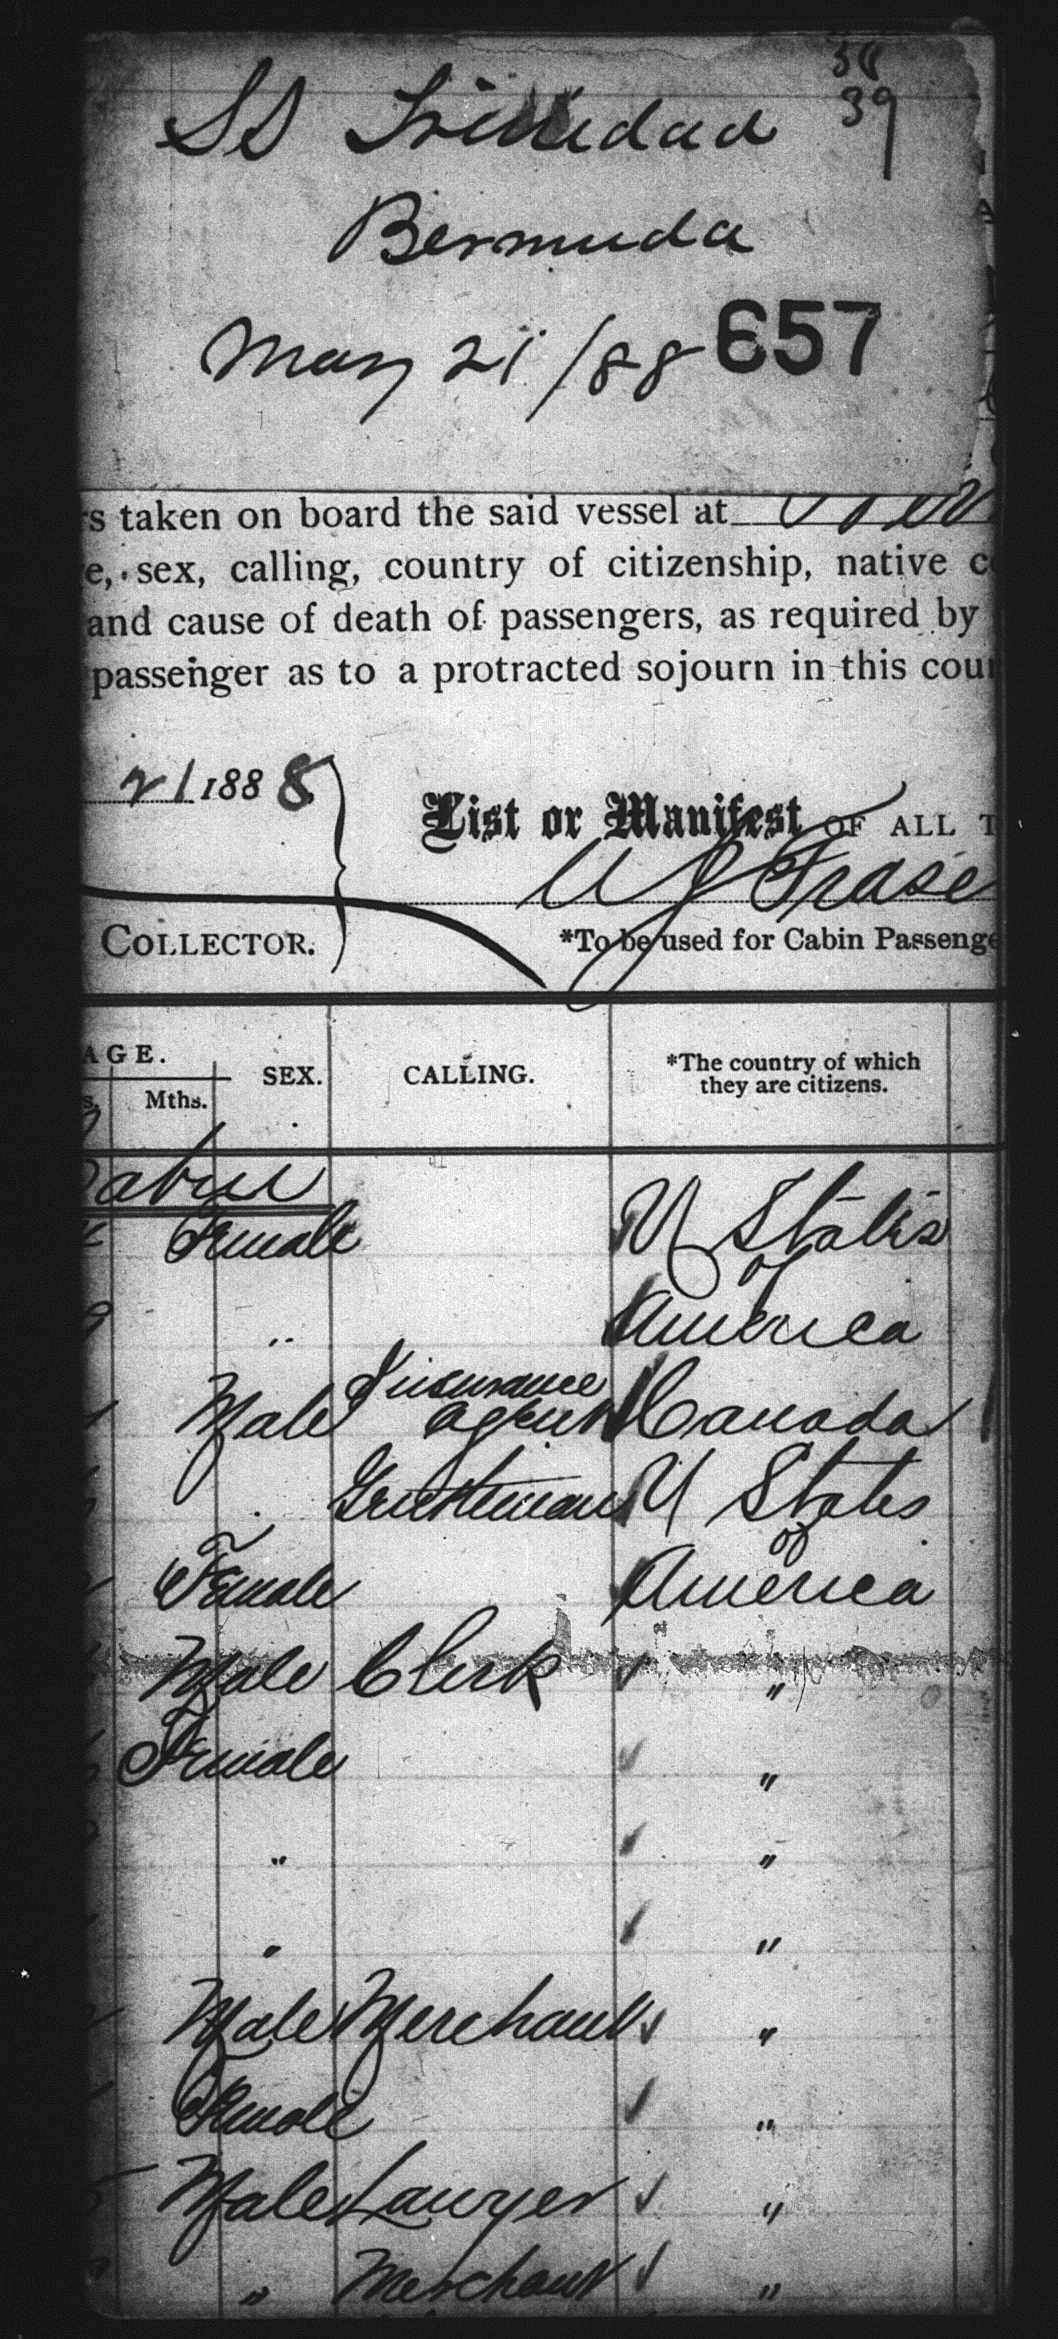 38
SS Trinidad 39
Bermuda
May 21/88 657
s taken on board the said vessel at
e, sex, calling, country of citizenship, native c
and cause of death of passengers, as required by
passenger as to a protracted sojourn in this coun
21 1888
List or Manifest OF ALL T
W J Frase
COLLECTOR.
*To be used for Cabin Passenge
AGE.
s. Mths. SEX. CALLING. *The country of which
they are citizens.
Cabin
Female U States
of
" America
Male Insurance
agent Canada
" Gentleman U States
of
Female America
Male Clerk "
Female "
" "
" "
Male Merchant "
Female "
Male Lawyer "
" Merchant "